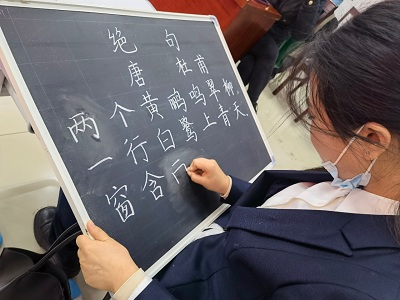 绝句
唐 杜甫
两个黄鹂鸣翠柳
一行白鹭上青天
窗含西